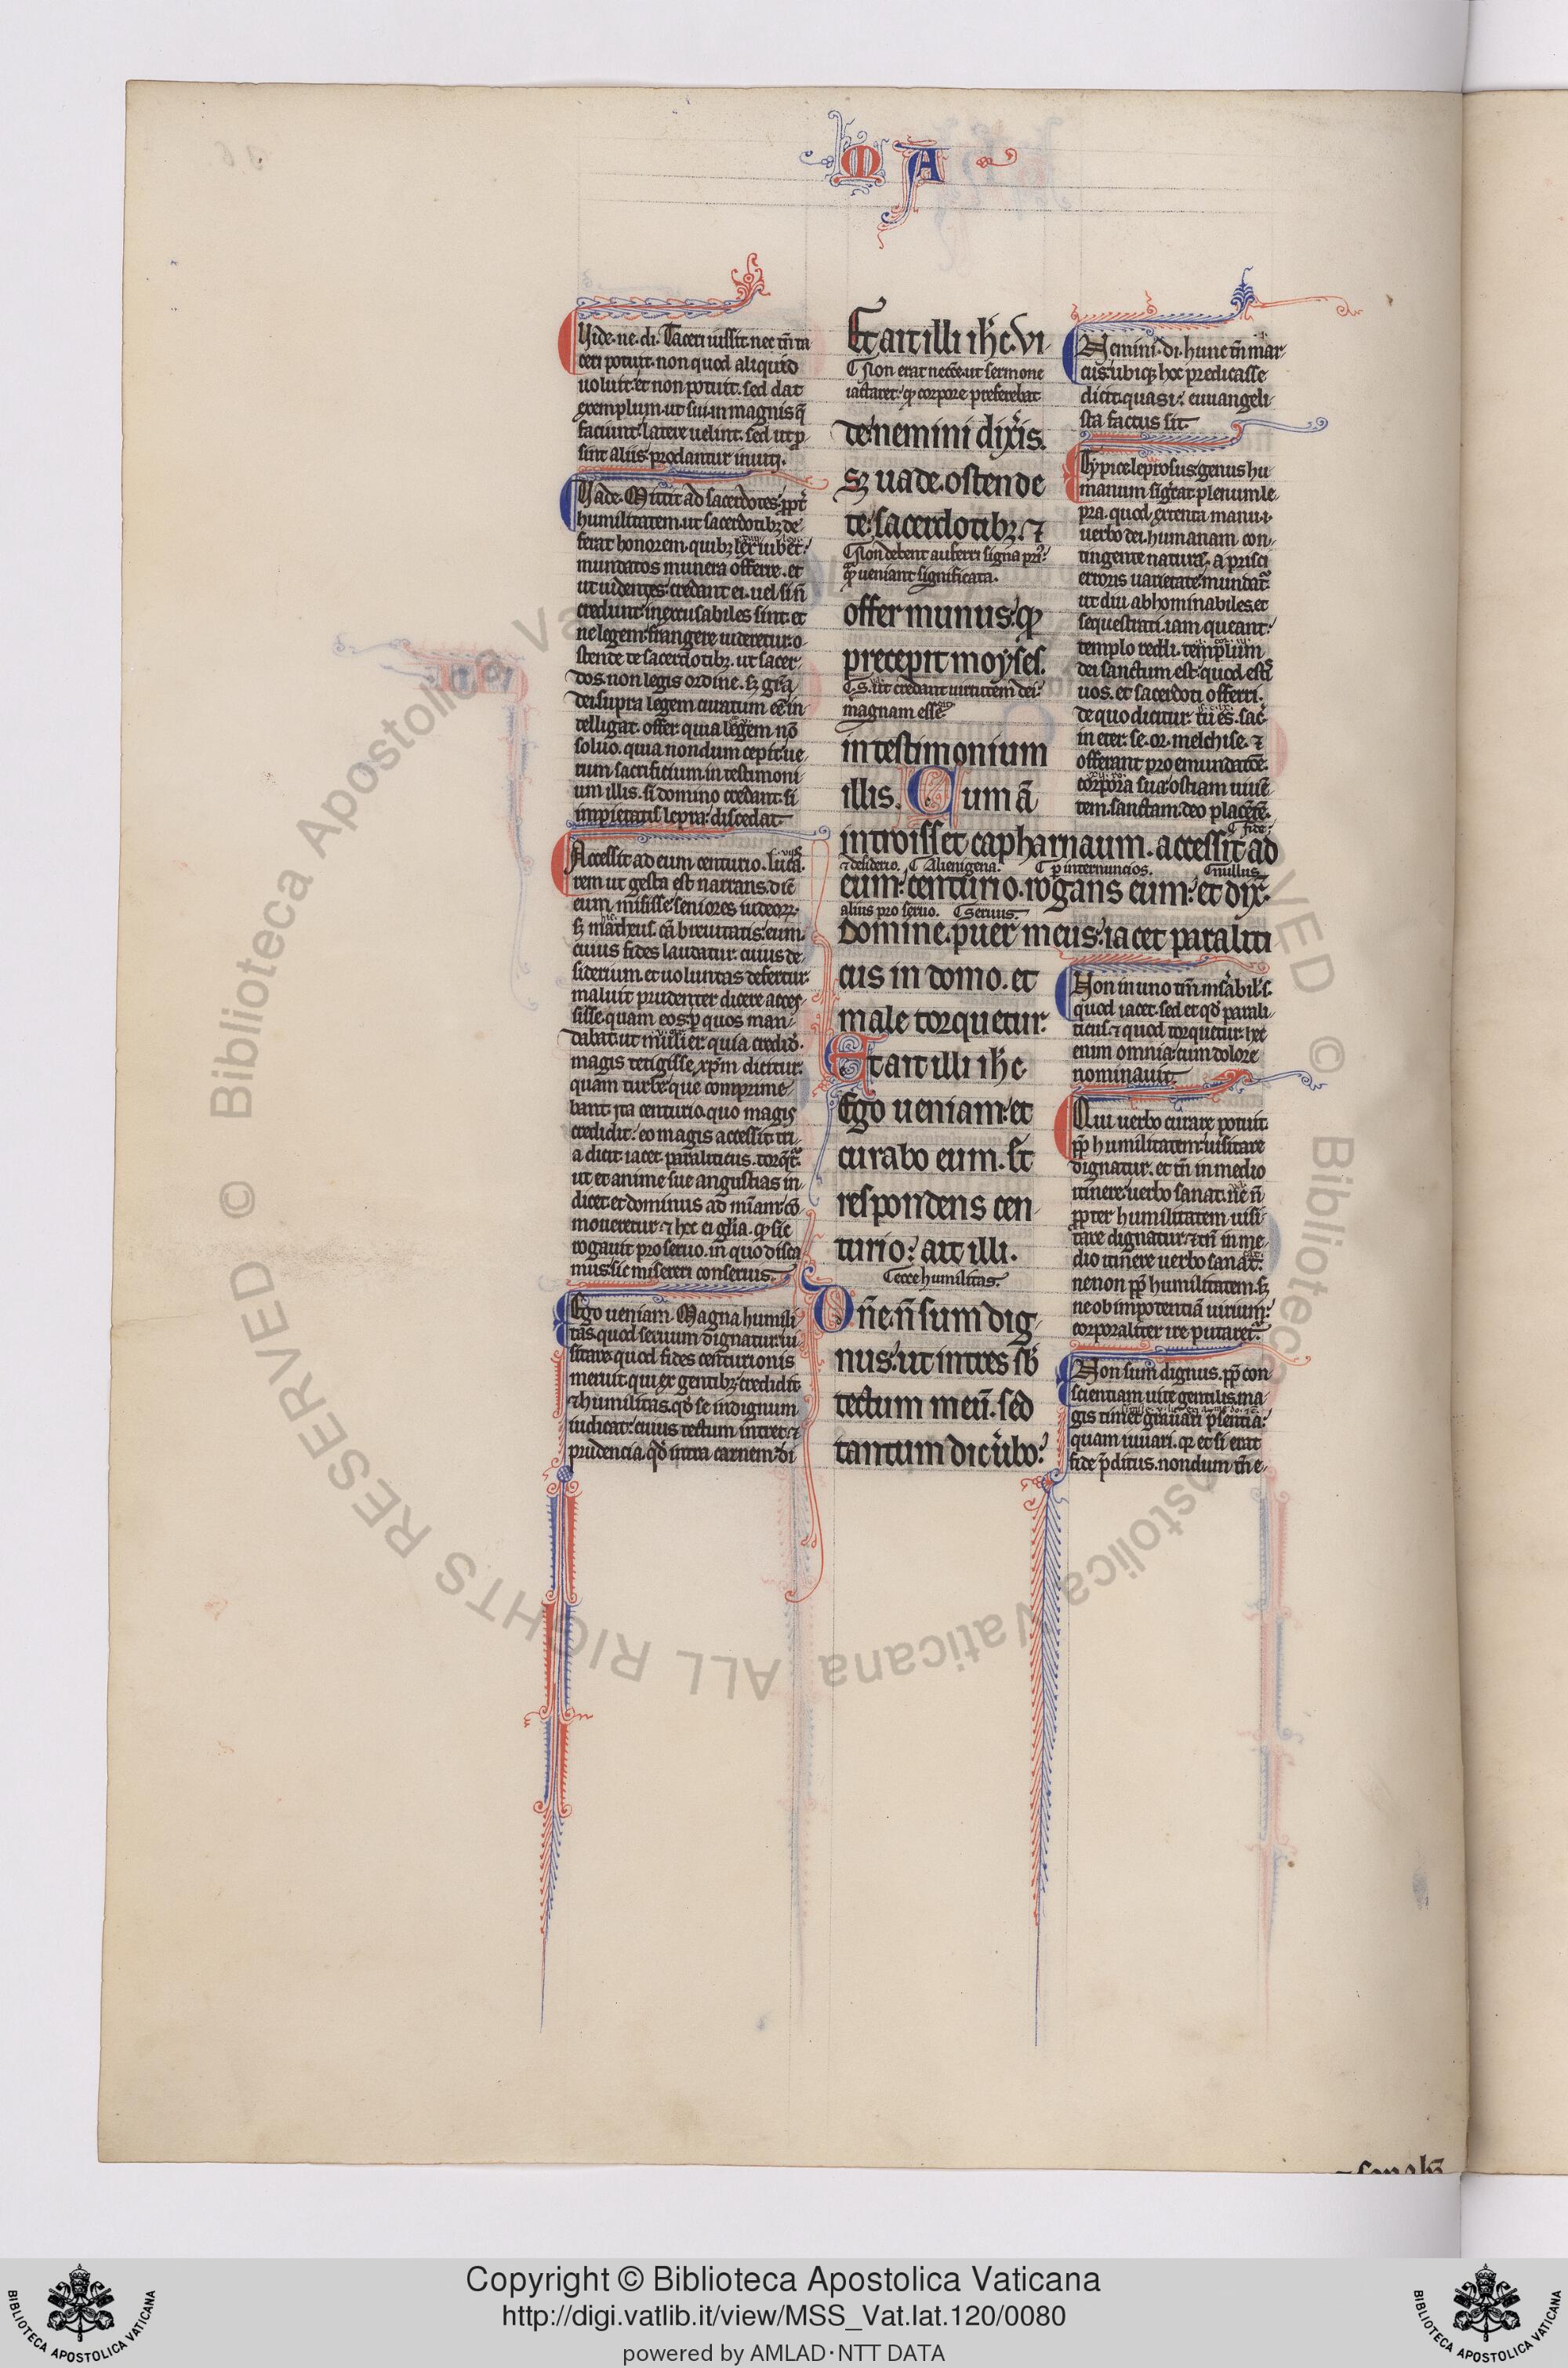 M A
Vide. ne. di. Taceri iussit. nec tm̄ ta
ceri potuit. non quod aliquid
uoluit. et non potuit. sed dat
exemplum. ut sui. in magnis q̄
faciunt. latere uelint. sed ut p
sint aliis. prodantur inuiti.
Vade. Mittit ad sacerdotes. ppt̄
humilitatem. ut sacerdotibꝫ de-
ferat honorem. quibꝫ lex iubet.
mundatos munera offerre. et
ut uidentes. credant ei. uel si n̄
credunt. inexcusabiles sint. et
ne legem frangere uideretur. o-
stende te sacerdotibꝫ. ut sacer-
dos. non legis ordine. sꝫ grā
dei supra legem curatum eē in-
telligat. offer. quia legem nō
soluo. quia nondum cepit ue-
rum sacrificium. in testimoni-
um illis. si domino credant. si
impietatis lepra. discedat.
Accessit ad eum centurio. Lucas
rem ut gesta est narrans. dic̄
eum misisse seniores iudeorꝝ.
sꝫ matheus cā breuitatis. eum
cuius fides laudatur. cuius de-
siderium. et uoluntas defertur.
maluit prudenter dicere acces-
sisse. quam eos. p quos man-
dabat. ut mulier. quia credid̄.
magis tetigisse xpm̄ dicitur.
quam turbe que comprime-
bant. ita centurio. quo magis
credidit. eo magis accessit. tri-
a dicit. iacet. paraliticus. torq̄t̄.
ut et anime sue angustias in-
dicet. et dominus ad mīam cō-
moueretur. ⁊ hec ei glīa. qꝫ sic
rogauit pro seruo. in quo disca
mus. sic misereri conseruis.
Ego ueniam. Magna humili
tas. quod seruum dignatur. ui-
sitare. quod fides centurionis
meruit. qui ex gentibꝫ. credidit
⁊ humilitas. qd̄ se indignum
iudicat. cuius tectum intret. ⁊
prudencia. qd̄ intra carnem. di
Et ait illi ih̄c. Vi
Non erat necēe. ut sermone
iactaret. qꝫ corpore preferebat
de. nemini dixīs.
Sꝫ uade. ostende
te. sacerdotibꝫ. ⁊
Non debent auferri signa pri.
qꝫ ueniant significata.
offer munus. qꝫ
precepit moyses.
S. ut credant uirtutem dei.
magnam esse.
in testimonium
illis. Cum ā
introisset capharnaum. accessit ad
fide.
⁊ desiderio. Alienigena. p internuncios. nullus
eum. centurio. rogans eum. et dix̄.
alius pro seruo. seruus.
domine. puer meus. iacet paraliti
cus in domo. et
male torquetur.
Et ait illi ih̄c.
Ego ueniam. et
curabo eum. Et
respondens cen-
turio. ait illi.
ecce humilitas.
Dn̄e. n̄ sum dig-
nus. ut intres sb̄
tectum meū. sed
tantum dic ūbo.
Nemini. di. hunc tm̄ mar-
cus. ubiqꝫ hoc predicasse
dicit. quasi. euuangeli-
sta factus sit.
Typice leprosus. genus hu
manum sigt̄at. plenum le-
pra. quod extenta manu. i.
uerbo dei. humanam con-
tingente naturā. a prisci
erroris uarietate mundat̄.
ut diu abhominabiles. et
sequestrati. iam queant.
templo reddi. templum
dei sanctum est. quod estis
uos. et sacerdoti offerri.
de quo dicitur. tu es. sac̄.
in eter. se. or. melchise. ⁊
offerant pro emundatōe.
corpora sua. ostiam uiuē
tem. sanctam. deo placētē.
Non in uno tm̄ misābil'. s.
quod iacet. sed et qd̄ parali-
ticus. ⁊ quod torquetur. hec
enim omnia. cum dolore
nominauit.
Qui uerbo curare potuit.
pp̄ humilitatem. uisitare
dignatur. et tn̄ in medio
itinere. uerbo sanat. ne n̄
ppter humilitatem uisi-
tare dignatur. ⁊ tn̄ in me-
dio itinere uerbo sanat.
ne non pp̄ humilitatem. sꝫ
ne ob impotentiā uirium.
corporaliter ire putaret̄.
Non sum dignus. pp̄ con
scientiam uite gentilis. ma-
gis timet grauari p̄sentia.
quam iuuari. qr et si erat
fide p̄ditus. nondum tn̄ e-
Biblioteca Apostolica Vaticana ALL RIGHTS RESERVED ©
Copyright © Biblioteca Apostolica Vaticana
http://digi.vatlib.it/view/MSS_Vat.lat.120/0080
powered by AMLAD·NTT DATA
BIBLIOTECA APOSTOLICA VATICANA
BIBLIOTECA APOSTOLICA VATICANA